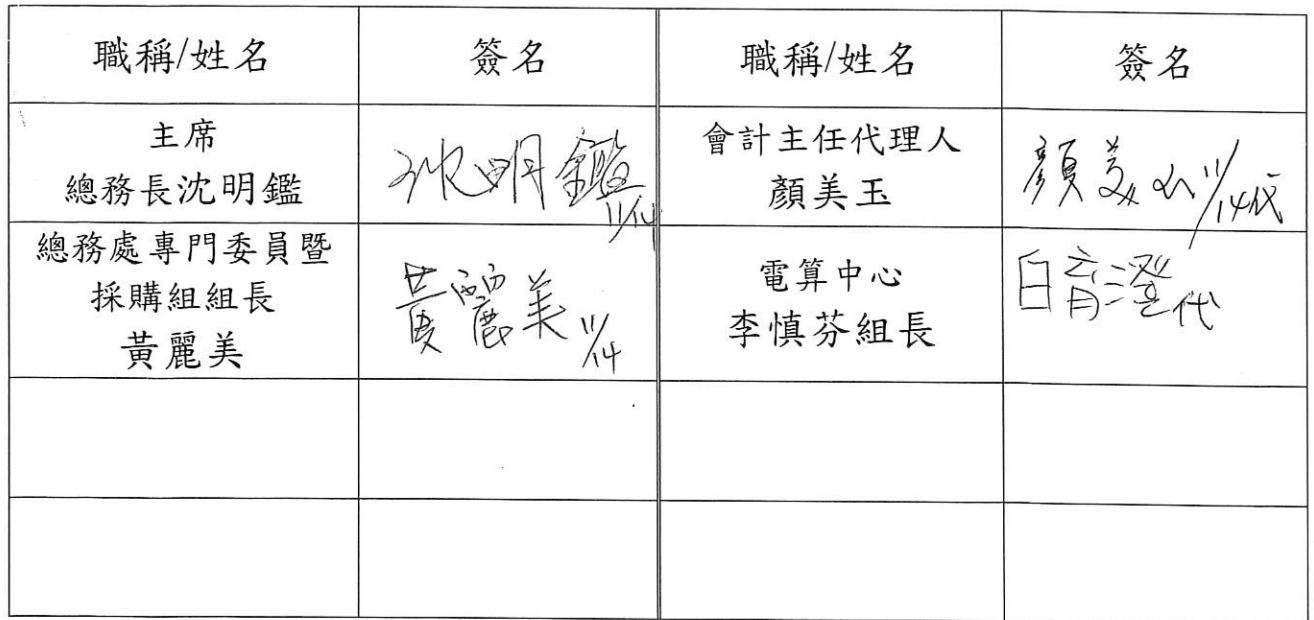 職稱/姓名 簽名 職稱/姓名 簽名
主席
總務長沈明鑑
沈明鑑
11/14
會計主任代理人
顏美玉
顏美玉 11/14代
總務處專門委員暨
採購組組長
黃麗美
黃麗美 11/14
電算中心
李慎芬組長
白育澄代